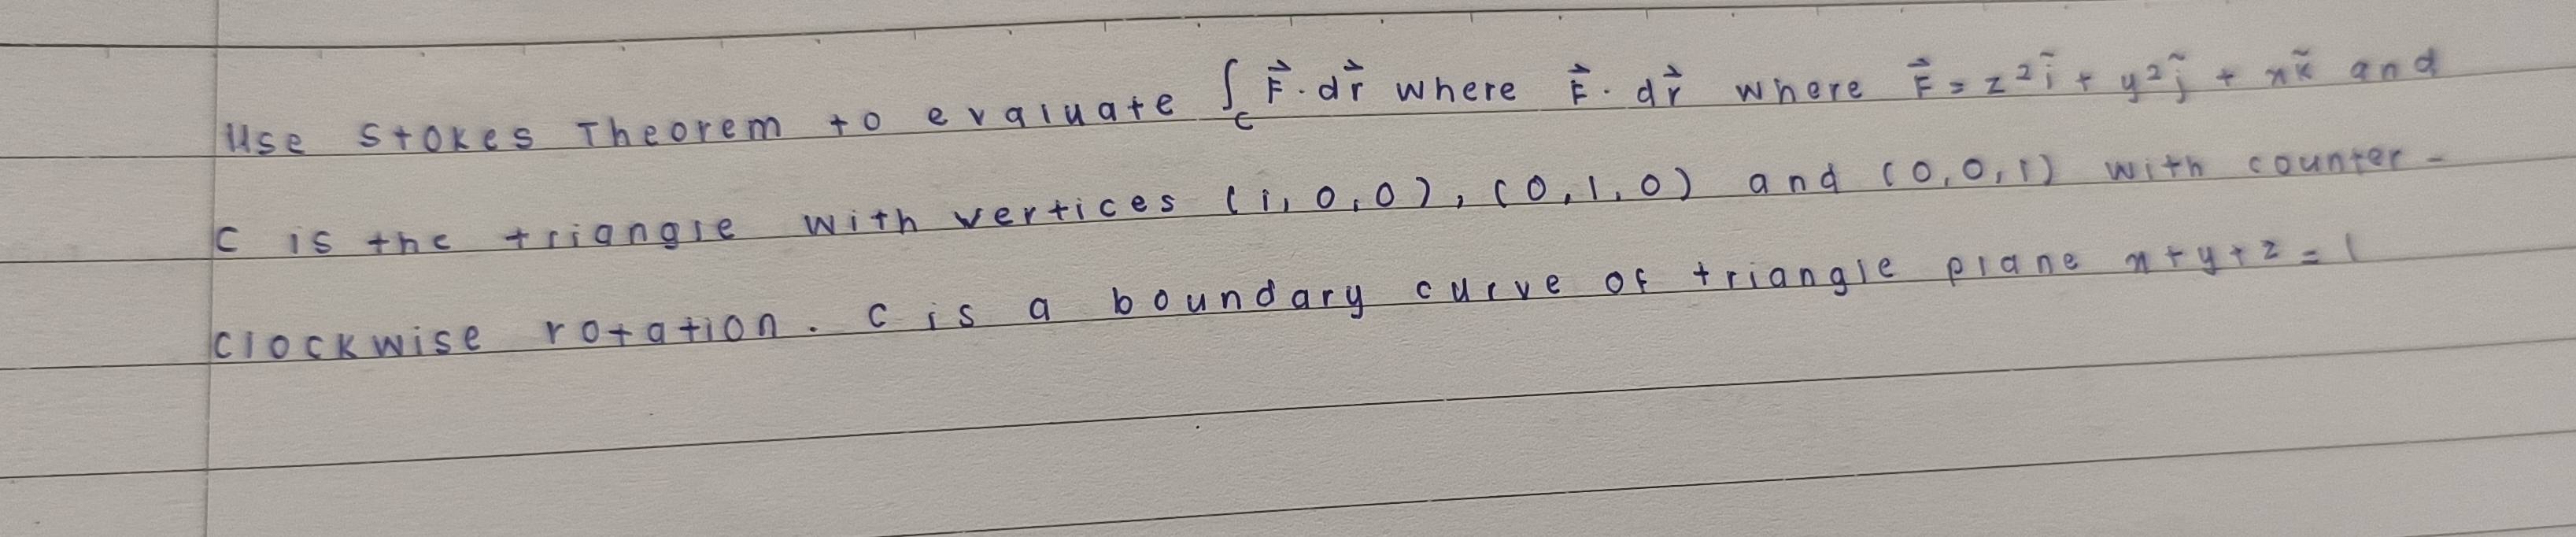 Use Stokes Theorem to evaluate ∫_C F⃗ · dr⃗ where F⃗ · dr⃗ where F⃗ = z²ĩ + y²j̃ + xk̃ and
C is the triangle with vertices (1,0,0), (0,1,0) and (0,0,1) with counter-
clockwise rotation. C is a boundary curve of triangle plane x+y+z=1